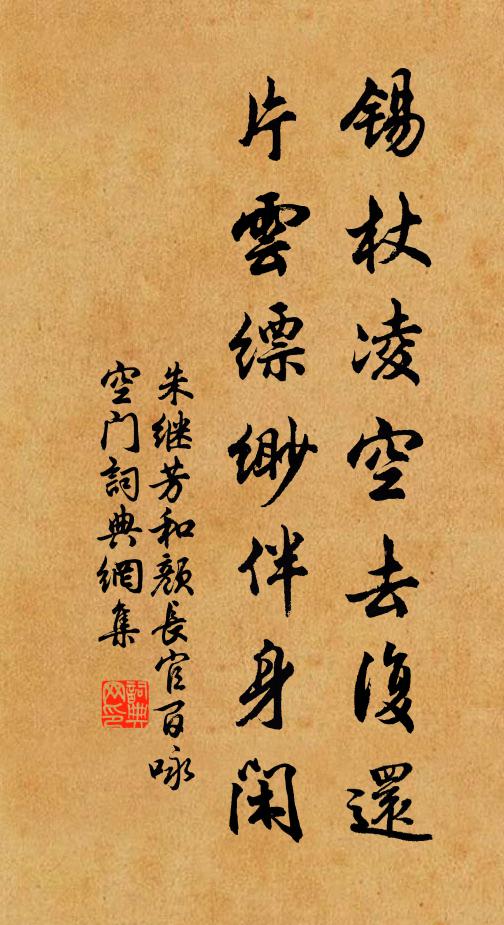 锡杖凌空去復還
片雲缥缈伴身閑
朱继芳和颜長官百咏
空门詞典網集
詞典
网印